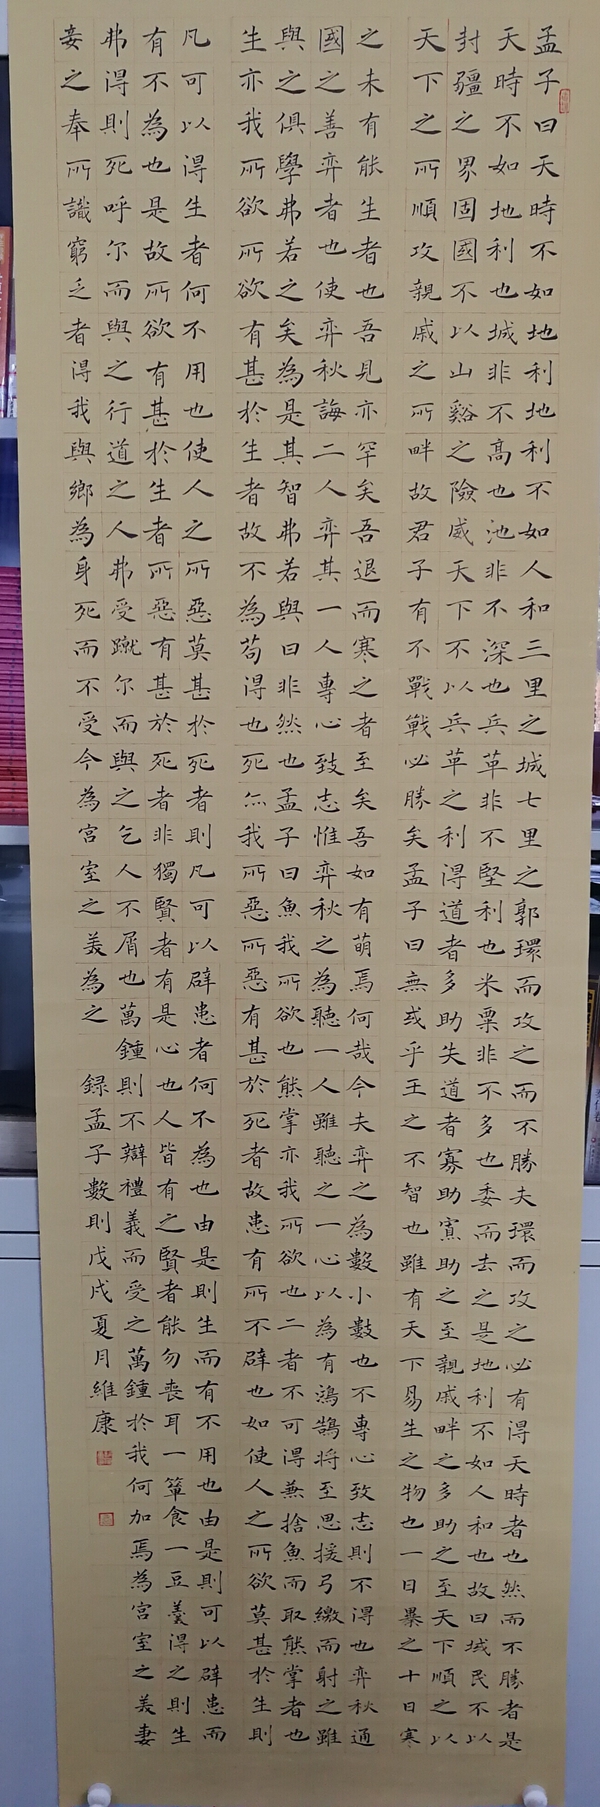 孟子曰天時不如地利地利不如人和三里之城七里之郭環而攻之而不勝夫環而攻之必有得天時者也然而不勝者是
天時不如地利也城非不高也池非不深也兵革非不堅利也米粟非不多也委而去之是地利不如人和也故曰域民不以
封疆之界固國不以山谿之險威天下不以兵革之利得道者多助失道者寡助寡助之至親戚畔之多助之至天下順之以
天下之所順攻親戚之所畔故君子有不戰戰必勝矣孟子曰無或乎王之不智也雖有天下易生之物也一日暴之十日寒
之未有能生者也吾見亦罕矣吾退而寒之者至矣吾如有萌焉何哉今夫弈之為數小數也不專心致志則不得也弈秋通
國之善弈者也使弈秋誨二人弈其一人專心致志惟弈秋之為聽一人雖聽之一心以為有鴻鵠將至思援弓繳而射之雖
與之俱學弗若之矣為是其智弗若與曰非然也孟子曰魚我所欲也熊掌亦我所欲也二者不可得兼捨魚而取熊掌者也
生亦我所欲所欲有甚於生者故不為苟得也死亦我所惡所惡有甚於死者故患有所不辟也如使人之所欲莫甚於生則
凡可以得生者何不用也使人之所惡莫甚於死者則凡可以辟患者何不為也由是則生而有不用也由是則可以辟患而
有不為也是故所欲有甚於生者所惡有甚於死者非獨賢者有是心也人皆有之賢者能勿喪耳一簞食一豆羹得之則生
弗得則死呼尔而與之行道之人弗受蹴尔而與之乞人不屑也萬鍾則不辯禮義而受之萬鍾於我何加焉為宮室之美妻
妾之奉所識窮乏者得我與鄉為身死而不受今為宮室之美為之 錄孟子數則戊戌夏月維康